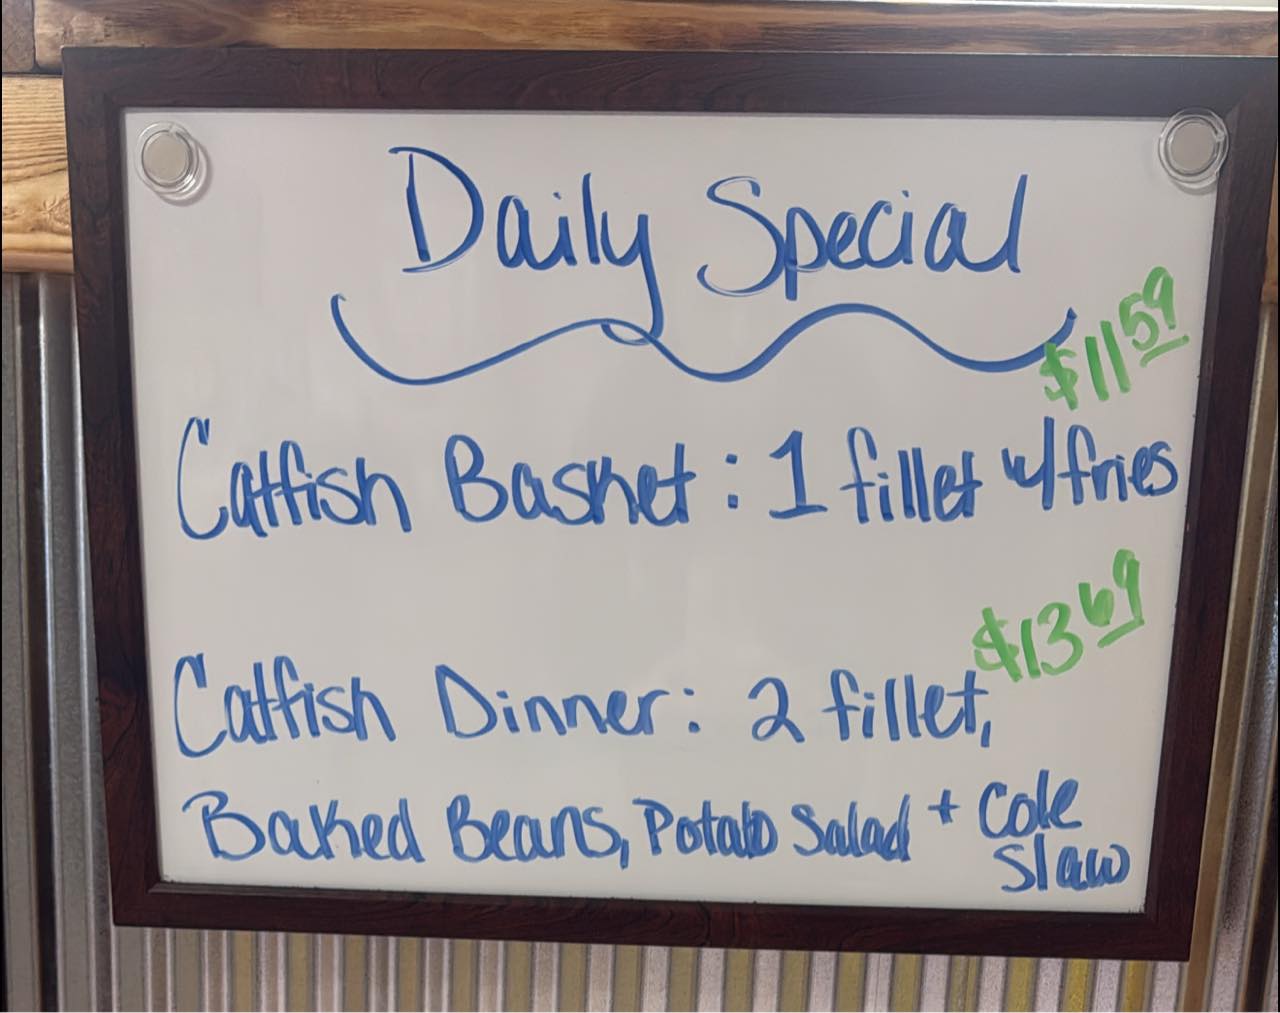 Daily Special
$11.59
Catfish Basket: 1 fillet w/fries
$13.69
Catfish Dinner: 2 fillet,
Baked Beans, Potato Salad + Cole
Slaw